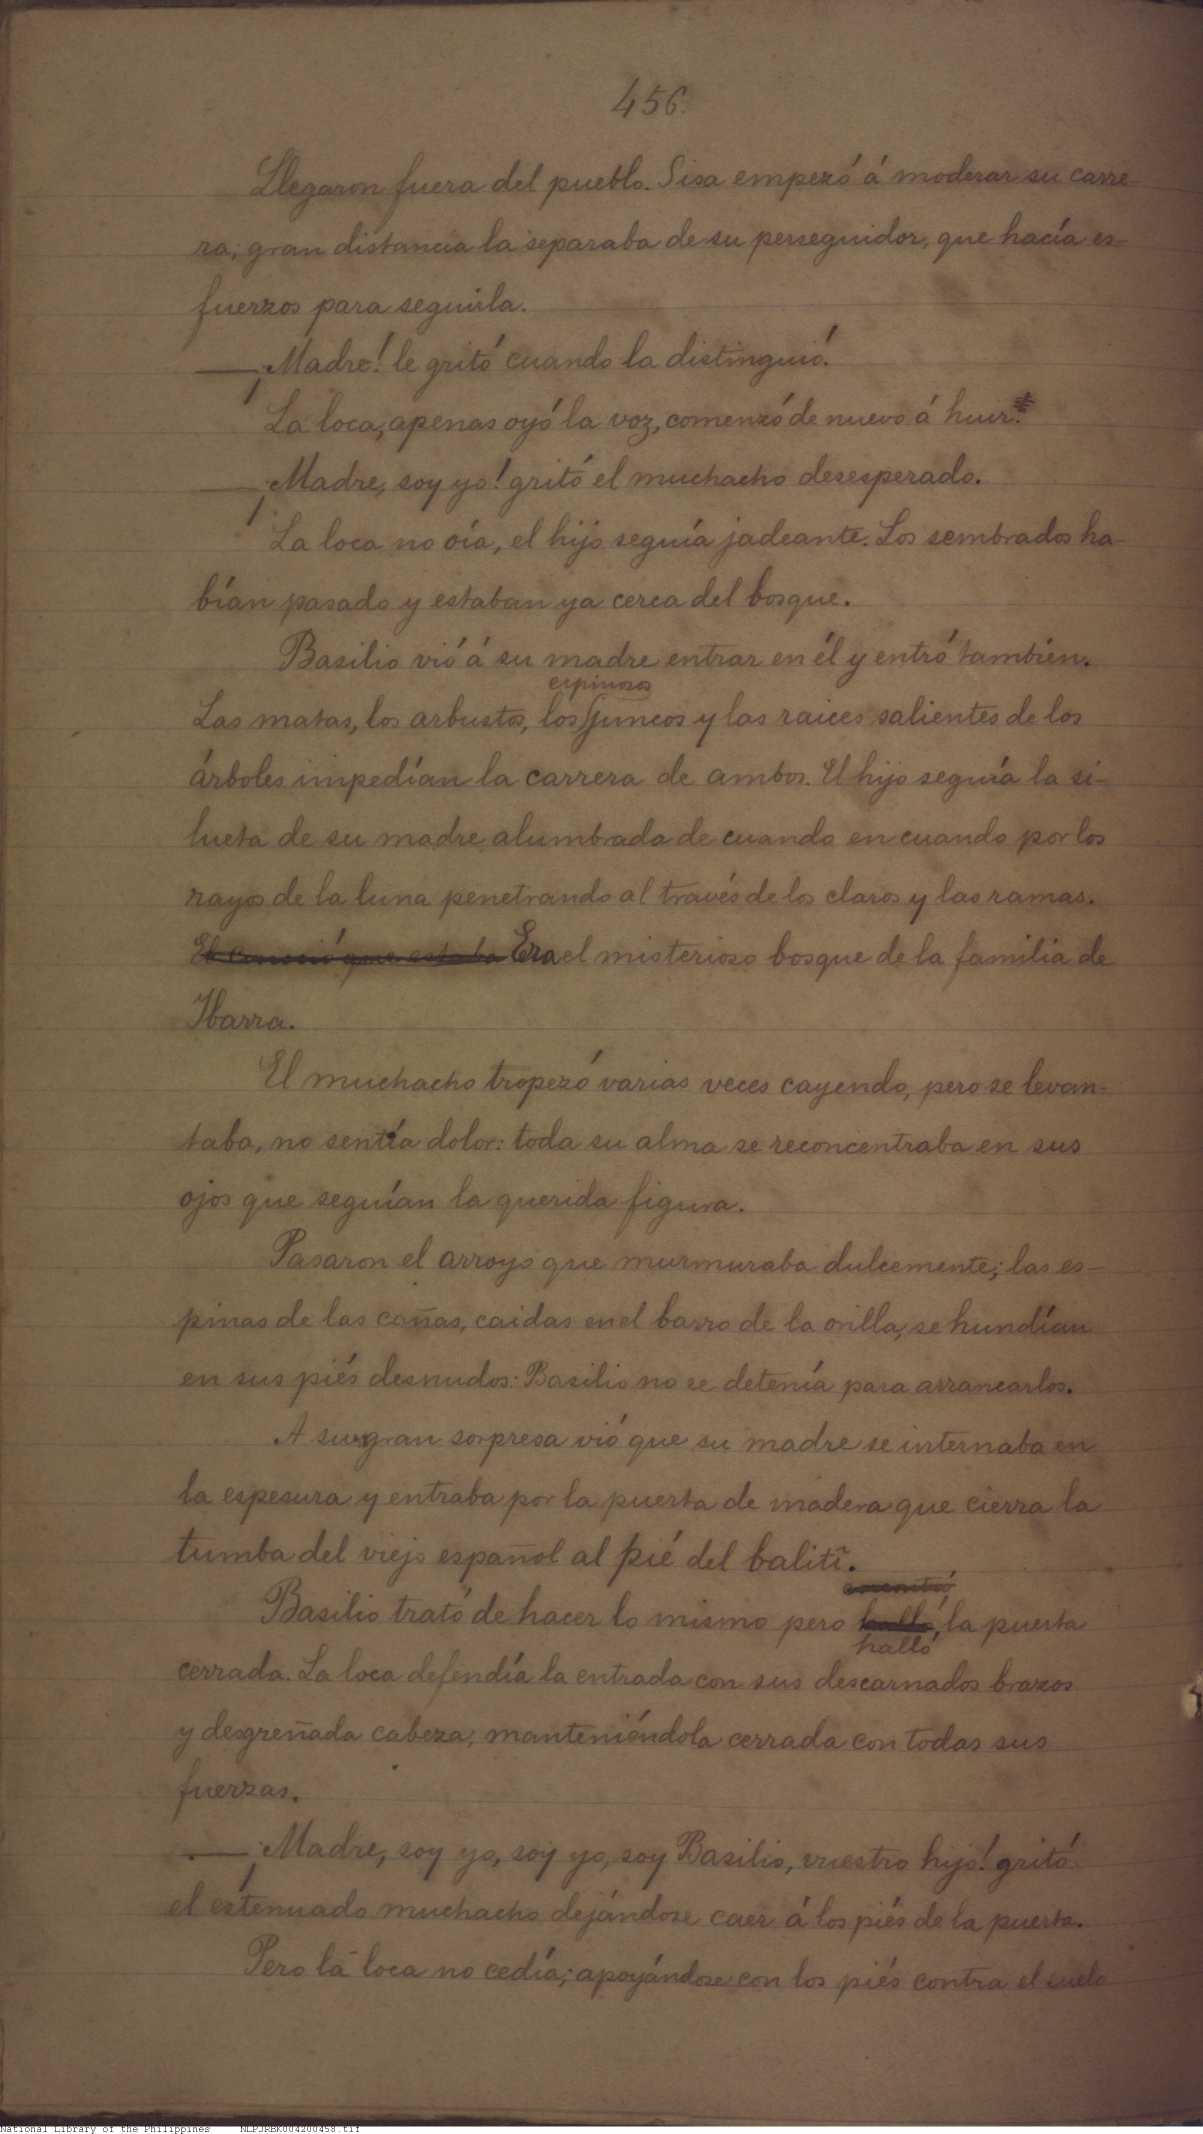 456.
Llegaron fuera del pueblo. Sisa empezó á moderar su carre-
ra; gran distancia la separaba de su perseguidor, que hacía es-
fuerzos para seguirla.
—¡Madre! le gritó cuando la distinguió.
La loca, apenas oyó la voz, comenzó de nuevo á huir.
—¡Madre, soy yo! gritó el muchacho desesperado.
La loca no oía, el hijo seguía jadeante. Los sembrados ha-
bían pasado y estaban ya cerca del bosque.
Basilio vió á su madre entrar en él y entró también.
espinosos
Las matas, los arbustos, los juncos y las raices salientes de los
árboles impedían la carrera de ambos. El hijo seguía la si-
lueta de su madre alumbrada de cuando en cuando por los
rayos de la luna penetrando al través de los claros y las ramas.
El conoció que estaba Era el misterioso bosque de la familia de
Ibarra.
El muchacho tropezó varias veces cayendo, pero se levan-
taba, no sentía dolor: toda su alma se reconcentraba en sus
ojos que seguían la querida figura.
Pasaron el arroyo que murmuraba dulcemente; las es-
pinas de las cañas, caidas en el barro de la orilla, se hundían
en sus piés desnudos: Basilio no se detenía para arrancarlos.
A su gran sorpresa vió que su madre se internaba en
la espesura y entraba por la puerta de madera que cierra la
tumba del viejo español al pié del balitî.
Basilio trató de hacer lo mismo pero halló, la puerta
halló
cerrada. La loca defendía la entrada con sus descarnados brazos
y desgreñada cabeza, manteniéndola cerrada con todas sus
fuerzas.
—¡Madre, soy yo, soy yo, soy Basilio, vuestro hijo! gritó
el estenuado muchacho dejándose caer á los piés de la puerta.
Pero la loca no cedía; apoyándose con los piés contra el suelo
National Library of the Philippines NLPJRBK004200458.tif